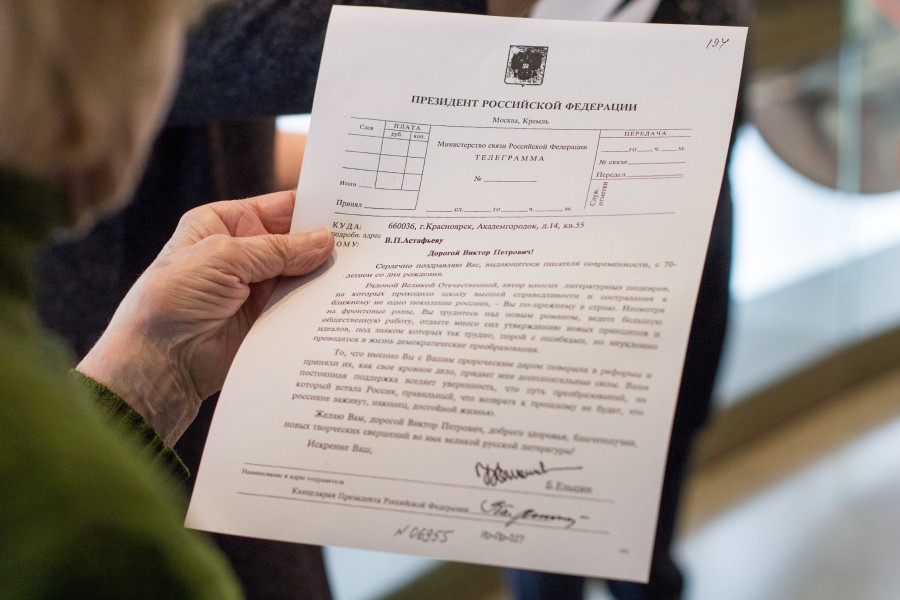 197
ПРЕЗИДЕНТ РОССИЙСКОЙ ФЕДЕРАЦИИ
Москва, Кремль
Слов ПЛАТА
руб. коп.
Итого
Принял
Министерство связи Российской Федерации
ТЕЛЕГРАММА
№
сл. го ч. м.
ПЕРЕДАЧА
го ч. м.
№ связи
Передал
Служ. отметки
КУДА: 660036, г.Красноярск, Академгородок, д.14, кв.55
подробн. адрес
КОМУ: В.П.Астафьеву
Дорогой Виктор Петрович!
Сердечно поздравляю Вас, выдающегося писателя современности, с 70-
летием со дня рождения.
Рядовой Великой Отечественной, автор многих литературных шедевров,
на которых проходило школу высшей справедливости и сострадания к
ближнему не одно поколение россиян, - Вы по-прежнему в строю. Несмотря
на фронтовые раны, Вы трудитесь над новым романом, ведете большую
общественную работу, отдаете много сил утверждению новых принципов и
идеалов, под знаком которых так трудно, порой с ошибками, но неуклонно
проводятся в жизнь демократические преобразования.
То, что именно Вы с Вашим пророческим даром поверили в реформы и
приняли их, как свое кровное дело, придает мне дополнительные силы. Ваша
постоянная поддержка вселяет уверенность, что путь преобразований, на
который встала Россия, правильный, что возврата к прошлому не будет, что
россияне заживут, наконец, достойной жизнью.
Желаю Вам, дорогой Виктор Петрович, доброго здоровья, благополучия,
новых творческих свершений во имя великой русской литературы!
Искренне Ваш,
Б.Ельцин
Наименование и адрес отправителя
Канцелярия Президента Российской Федерации
N 06955